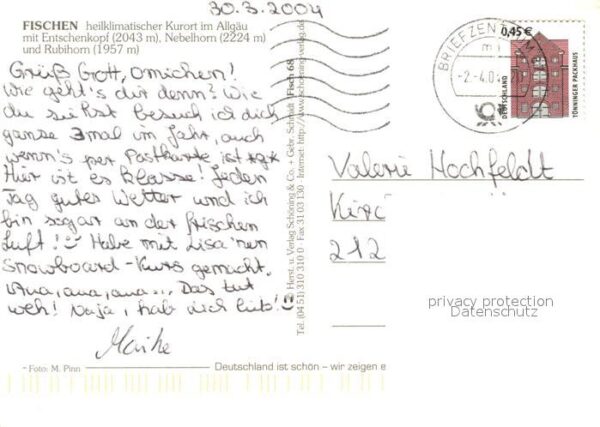 30.3.2004
FISCHEN heilklimatischer Kurort im Allgäu
mit Entschenkopf (2043 m), Nebelhorn (2224 m)
und Rubihorn (1957 m)
Grüß Gott, Omichen!
Wie geht's dir denn? Wie
du siehst besuch ich dich
ganze 3mal im Jahr, auch
wenn's per Postkarte ist *g*
Hier ist es klasse! Jeden
Tag gutes Wetter und ich
bin sogar an der frischen
Luft! Habe mit Lisa 'nen
Snowboard-Kurs gemacht.
Aua, aua, aua... Das tut
weh! Naja, hab dich lieb!
Maike
Foto: M. Pinn
Herst. u. Verlag Schöning & Co. + Gebr. Schmidt Fisch 68
Tel. (04 51) 310 310 0 · Fax 31 03 130 · Internet: http://www.schoening-verlag.de
Deutschland ist schön – wir zeigen e
BRIEFZENTRUM
-2.-4.04
0,45 €
DEUTSCHLAND
TÖNNINGER PACKHAUS
Valerie Hochfeldt
212
privacy protection
Datenschutz